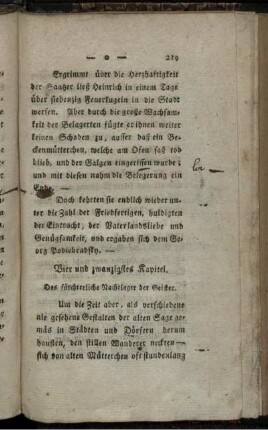 — o — 219
Ergrimmt über die Herzhaftigkeit
der Saatzer ließ Heinrich in einem Tage
über siebenzig Feuerkugeln in die Stadt
werfen. Aber durch die große Wachsam-
keit der Belagerten fügte er ihnen weiter
keinen Schaden zu, ausser daß ein Be-
ckenmütterchen, welche am Ofen saß tod
blieb, und der Galgen eingerissen wurde;
und mit diesen nahm die Belegerung ein
Ende.
Doch kehrten sie endlich wieder un-
ter die Zahl der Friedfertigen, huldigten
der Eintracht, der Vaterlandsliebe und
Genügsamkeit, und ergaben sich dem Ge-
org Podiebradsky.
Vier und zwanzigstes Kapitel.
Das fürchterliche Nachtlager der Geister.
Um die Zeit aber, als verschiedene
nie gesehene Gestalten der alten Sage ge-
mäs in Städten und Dörfern herum
hausten, den stillen Wanderer neckten—
sich von alten Mütterchen oft stundenlang